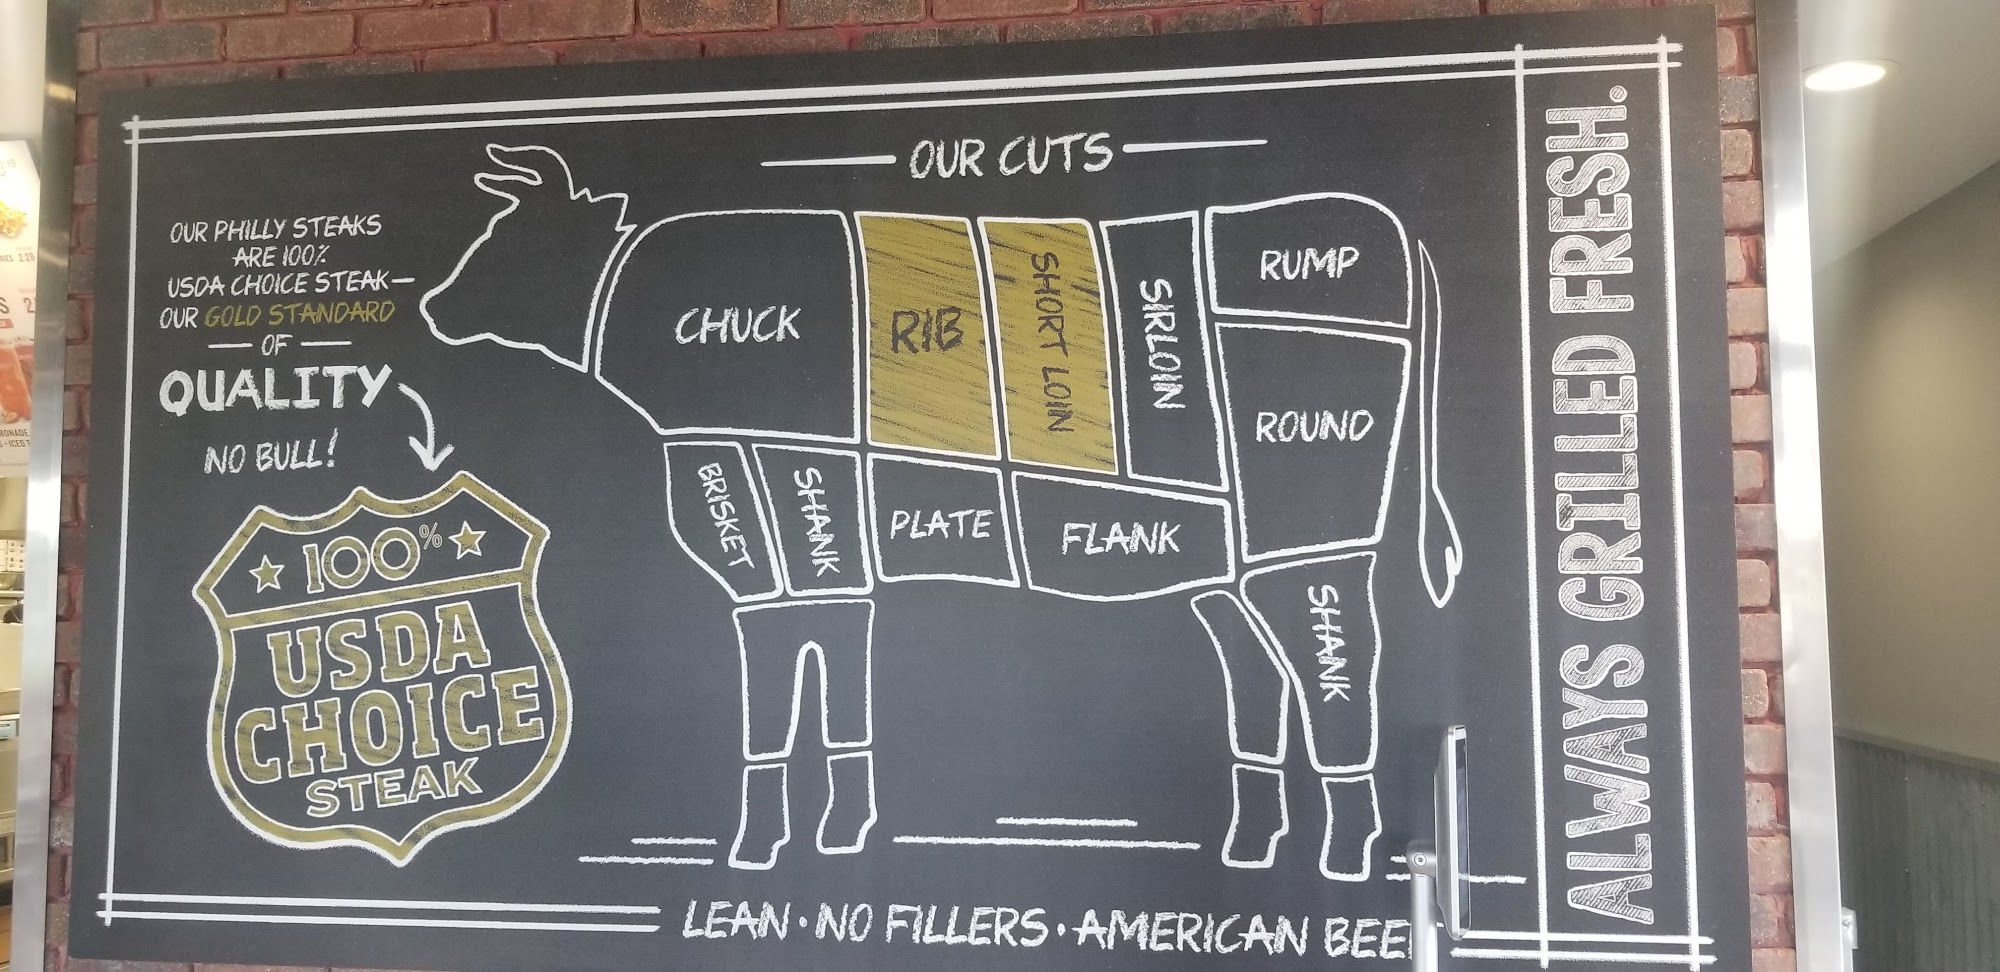 OUR CUTS
OUR PHILLY STEAKS
ARE 100%
USDA CHOICE STEAK—
OUR GOLD STANDARD
— OF —
QUALITY
NO BULL!
100%
USDA
CHOICE
STEAK
CHUCK
RIB
SHORT LOIN
SIRLOIN
RUMP
ROUND
BRISKET
SHANK
PLATE
FLANK
SHANK
LEAN • NO FILLERS • AMERICAN BEE
ALWAYS GRILLED FRESH.